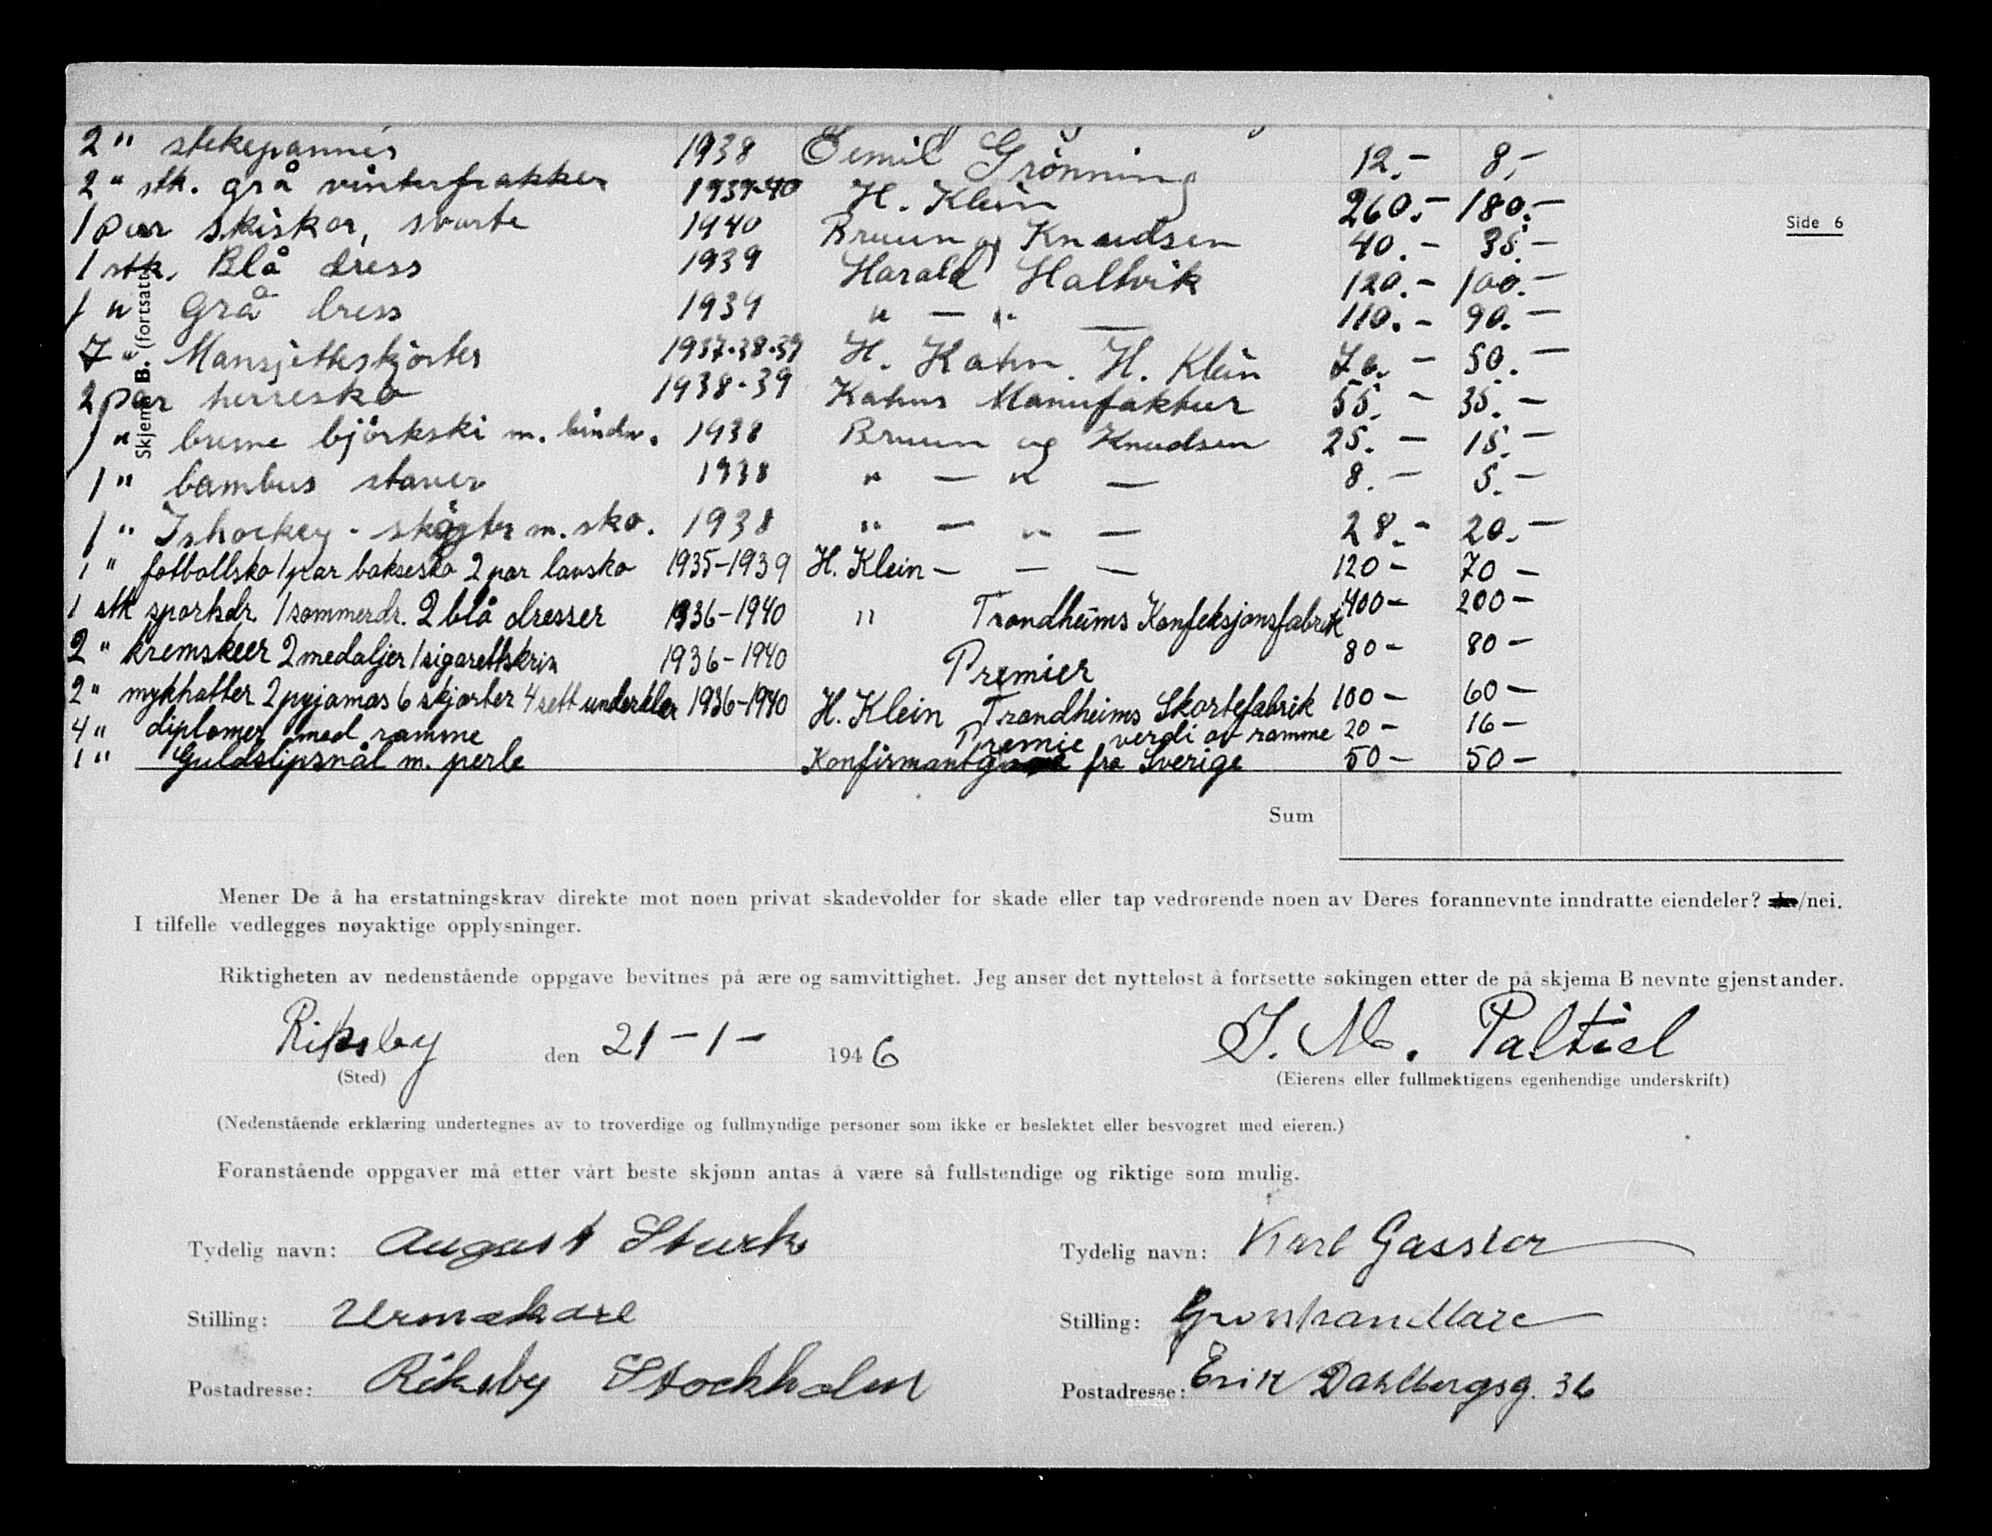 2 " stekepanner 1938 Eemil Grønning 12.- 8,-
2 " stk. grå vinterfrakker 1939-40 H. Klein 260.- 180.-
Side 6
1 par skiskor, svarte 1940 Bruun og Knudsen 40.- 35.-
1 stk. Blå dress 1939 Harald Haltvik 120.- 100.-
1 " Grå dress 1939 " - " - 110.- 90.-
7 " Mansjettskjorter 1937-38-39 H. Kahn. H. Klein 70.- 50.-
2 par herresko 1938-39 Kahns Manufaktur 55.- 35.-
Skjema B. (fortsatt
1 " brune björkski m. bindn. 1938 Bruun og Knudsen 25.- 15.-
1 " bambus staver 1938 " - " - 8.- 5.-
1 " Ishockey-skøyter m. sko. 1938 " - " - 28.- 20.-
1 " fotballsko 1 par boksesko 2 par lavsko 1935-1939 H. Klein - - - 120- 70-
1 stk sportsdr. 1 sommerdr. 2 blå dresser 1936-1940 " Trondheims Konfeksjonsfabrik 400- 200-
2 " kremskeer 2 medaljer 1 sigarettskrin 1936-1940 Premier 80- 80-
2 " mykhatter 2 pyjamas 6 skjorter 4 sett underklær 1936-1940 H. Klein Trondheims Skortefabrik 100- 60-
4 " diplomer med ramme Premie verdi av ramme 20- 16-
1 " Guldslipsnål m. perle Konfirmantgave fra Sverige 50- 50-
Sum
Mener De å ha erstatningskrav direkte mot noen privat skadevolder for skade eller tap vedrørende noen av Deres forannevnte inndratte eiendeler? Ja/nei.
I tilfelle vedlegges nøyaktige opplysninger.
Riktigheten av nedenstående oppgave bevitnes på ære og samvittighet. Jeg anser det nytteløst å fortsette søkingen etter de på skjema B nevnte gjenstander.
Riksby den 21-1- 1946 J. M. Paltiel
(Sted) (Eierens eller fullmektigens egenhendige underskrift)
(Nedenstående erklæring undertegnes av to troverdige og fullmyndige personer som ikke er beslektet eller besvogret med eieren.)
Foranstående oppgaver må etter vårt beste skjønn antas å være så fullstendige og riktige som mulig.
Tydelig navn: August Sturk Tydelig navn: Karl Gassler
Stilling: Urmakare Stilling: Grosshandlare
Postadresse: Riksby Stockholm Postadresse: Erik Dahlbergsg. 36